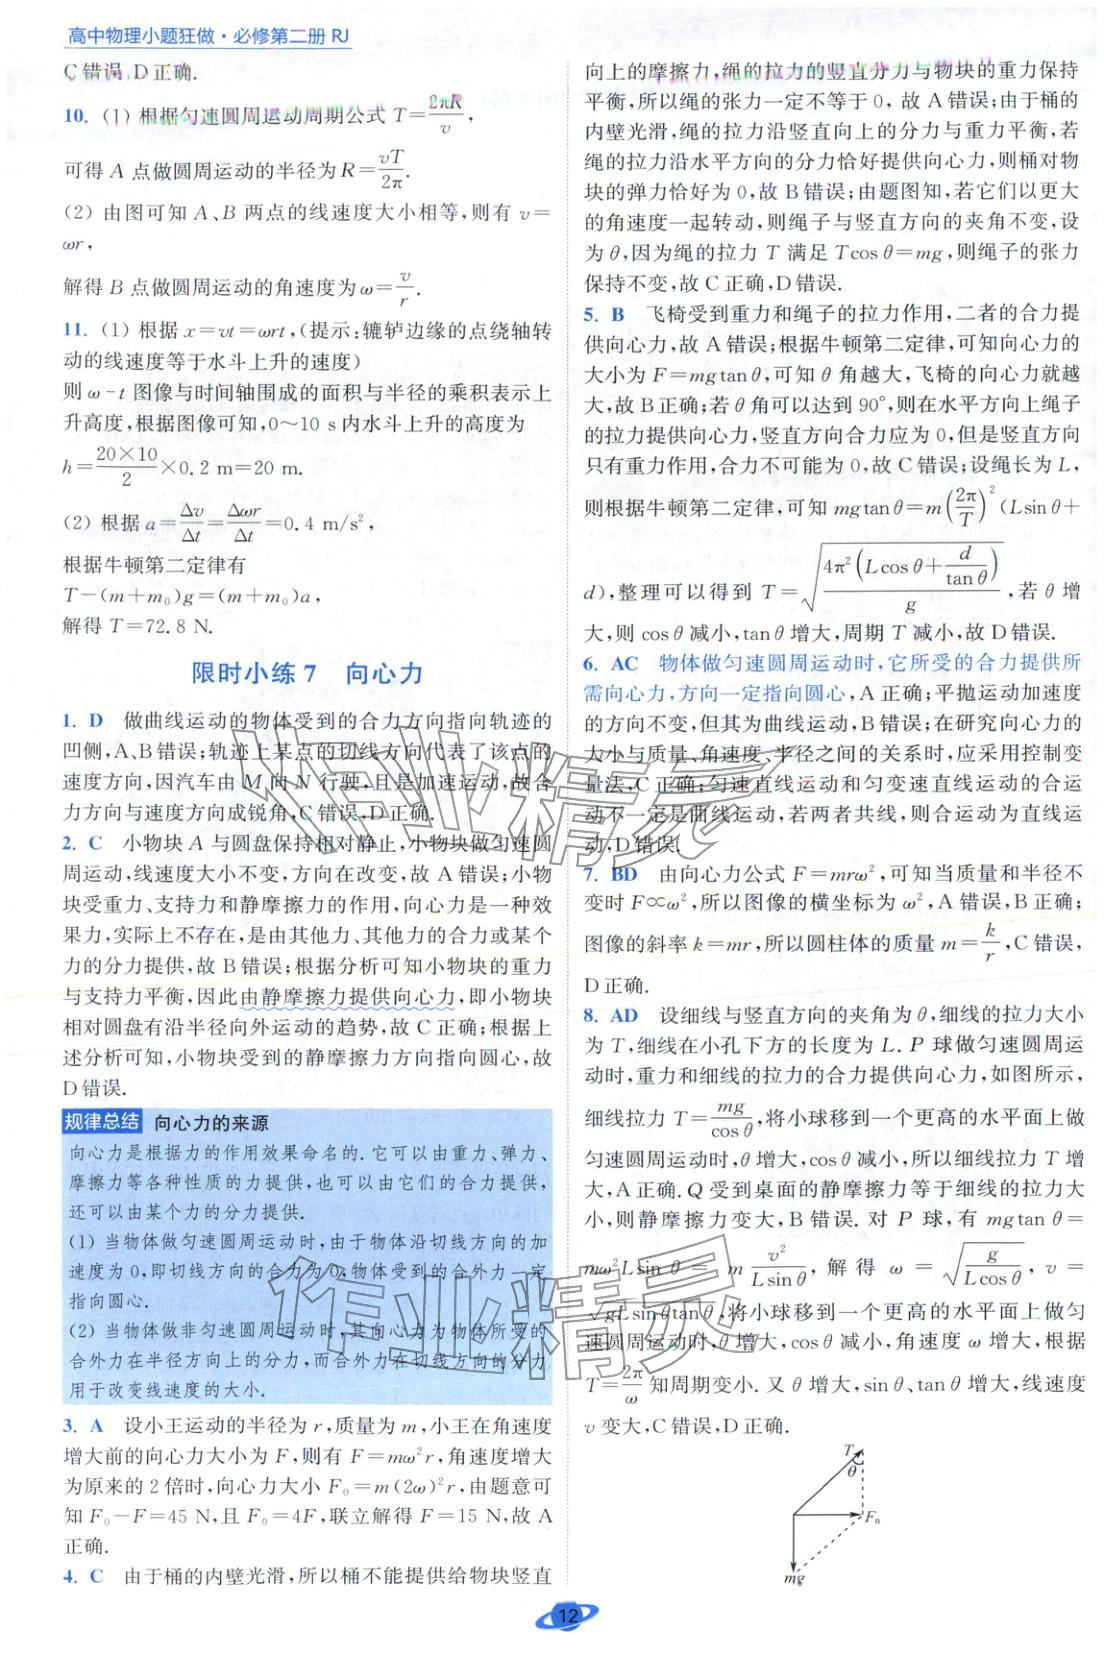 高中物理小题狂做·必修第二册 RJ
C错误,D正确.
10. (1) 根据匀速圆周运动周期公式 T=2πR/v,
可得 A 点做圆周运动的半径为 R=vT/2π.
(2) 由图可知 A、B 两点的线速度大小相等,则有 v=
ωr,
解得 B 点做圆周运动的角速度为 ω=v/r.
11. (1) 根据 x=vt=ωrt,(提示:辘轳边缘的点绕轴转
动的线速度等于水斗上升的速度)
则 ω-t 图像与时间轴围成的面积与半径的乘积表示上
升高度,根据图像可知,0~10 s内水斗上升的高度为
h=20×10/2×0.2 m=20 m.
(2) 根据 a=Δv/Δt=Δωr/Δt=0.4 m/s²,
根据牛顿第二定律有
T-(m+m₀)g=(m+m₀)a,
解得 T=72.8 N.
限时小练7 向心力
1. D 做曲线运动的物体受到的合力方向指向轨迹的
凹侧,A、B错误;轨迹上某点的切线方向代表了该点的
速度方向,因汽车由 M 向 N 行驶,且是加速运动,故合
力方向与速度方向成锐角,C错误,D正确.
2. C 小物块 A 与圆盘保持相对静止,小物块做匀速圆
周运动,线速度大小不变,方向在改变,故 A 错误;小物
块受重力、支持力和静摩擦力的作用,向心力是一种效
果力,实际上不存在,是由其他力、其他力的合力或某个
力的分力提供,故 B错误;根据分析可知小物块的重力
与支持力平衡,因此由静摩擦力提供向心力,即小物块
相对圆盘有沿半径向外运动的趋势,故 C正确;根据上
述分析可知,小物块受到的静摩擦力方向指向圆心,故
D错误.
规律总结 向心力的来源
向心力是根据力的作用效果命名的.它可以由重力、弹力、
摩擦力等各种性质的力提供,也可以由它们的合力提供,
还可以由某个力的分力提供.
(1) 当物体做匀速圆周运动时,由于物体沿切线方向的加
速度为0,即切线方向的合力为0,物体受到的合外力一定
指向圆心.
(2) 当物体做非匀速圆周运动时,其向心力为物体所受的
合外力在半径方向上的分力,而合外力在切线方向的分力
用于改变线速度的大小.
3. A 设小王运动的半径为 r,质量为 m,小王在角速度
增大前的向心力大小为 F,则有 F=mω²r,角速度增大
为原来的2倍时,向心力大小 F₀=m(2ω)²r,由题意可
知 F₀-F=45 N,且 F₀=4F,联立解得 F=15 N,故 A
正确.
4. C 由于桶的内壁光滑,所以桶不能提供给物块竖直
向上的摩擦力,绳的拉力的竖直分力与物块的重力保持
平衡,所以绳的张力一定不等于0,故 A错误;由于桶的
内壁光滑,绳的拉力沿竖直向上的分力与重力平衡,若
绳的拉力沿水平方向的分力恰好提供向心力,则桶对物
块的弹力恰好为0,故 B错误;由题图知,若它们以更大
的角速度一起转动,则绳子与竖直方向的夹角不变,设
为 θ,因为绳的拉力 T 满足 Tcos θ=mg,则绳子的张力
保持不变,故 C正确,D错误.
5. B 飞椅受到重力和绳子的拉力作用,二者的合力提
供向心力,故 A错误;根据牛顿第二定律,可知向心力的
大小为 F=mgtan θ,可知 θ 角越大,飞椅的向心力就越
大,故 B正确;若 θ 角可以达到 90°,则在水平方向上绳子
的拉力提供向心力,竖直方向合力应为0,但是竖直方向
只有重力作用,合力不可能为0,故C错误;设绳长为 L,
则根据牛顿第二定律,可知 mgtan θ=m(2π/T)²(Lsin θ+
d),整理可以得到 T=√(4π²(Lcos θ+d/tan θ)/g),若 θ 增
大,则 cos θ 减小,tan θ 增大,周期 T 减小,故 D错误.
6. AC 物体做匀速圆周运动时,它所受的合力提供所
需向心力,方向一定指向圆心,A 正确;平抛运动加速度
的方向不变,但其为曲线运动,B错误;在研究向心力的
大小与质量、角速度、半径之间的关系时,应采用控制变
量法,C 正确;匀速直线运动和匀变速直线运动的合运
动不一定是曲线运动,若两者共线,则合运动为直线运
动,D错误.
7. BD 由向心力公式 F=mrω²,可知当质量和半径不
变时 F∝ω²,所以图像的横坐标为 ω²,A错误,B正确;
图像的斜率 k=mr,所以圆柱体的质量 m=k/r,C错误,
D正确.
8. AD 设细线与竖直方向的夹角为 θ,细线的拉力大小
为 T,细线在小孔下方的长度为 L. P 球做匀速圆周运
动时,重力和细线的拉力的合力提供向心力,如图所示,
细线拉力 T=mg/cos θ,将小球移到一个更高的水平面上做
匀速圆周运动时,θ 增大,cos θ 减小,所以细线拉力 T 增
大,A 正确. Q 受到桌面的静摩擦力等于细线的拉力大
小,则静摩擦力变大,B 错误. 对 P 球,有 mgtan θ=
mω²Lsin θ = m v²/Lsin θ,解得 ω=√(g/Lcos θ), v=
√gLsin θtan θ,将小球移到一个更高的水平面上做匀
速圆周运动时,θ 增大,cos θ 减小,角速度 ω 增大,根据
T=2π/ω知周期变小. 又 θ 增大,sin θ、tan θ 增大,线速度
v 变大,C错误,D正确.
T
θ
Fₙ
mg
作业精灵
作业精灵
12